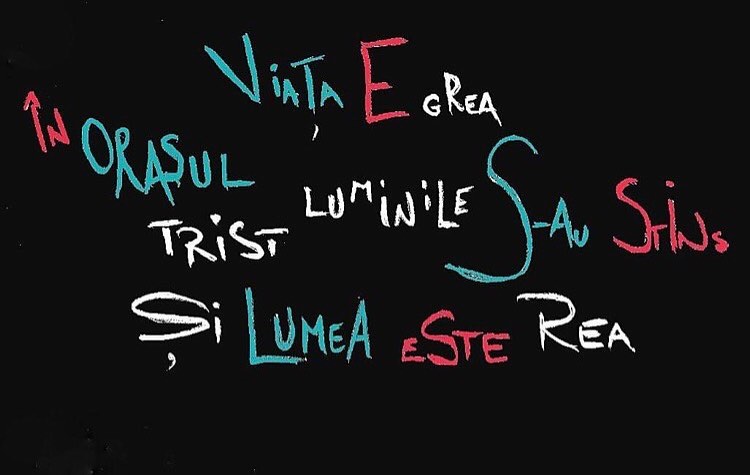 Viața E grea
În Orașul
trist luminile S-au Stins
Și Lumea este Rea